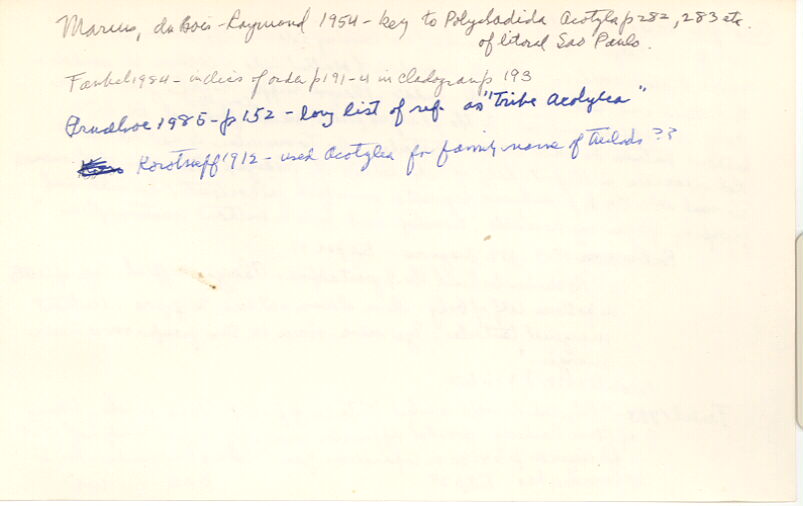 Marcus, du Bois-Raymond 1954 - key to Polycladida Acotylea p 282, 283 etc.
of litoral Sao Paulo.
1984 - indices of order p 191-4 in cladogram p 193
Prudhoe 1985 - p 152 - long list of ref. as "Tribe Acotylea"
Korotneff 1912 - used Acotylea for family name of triclads ??